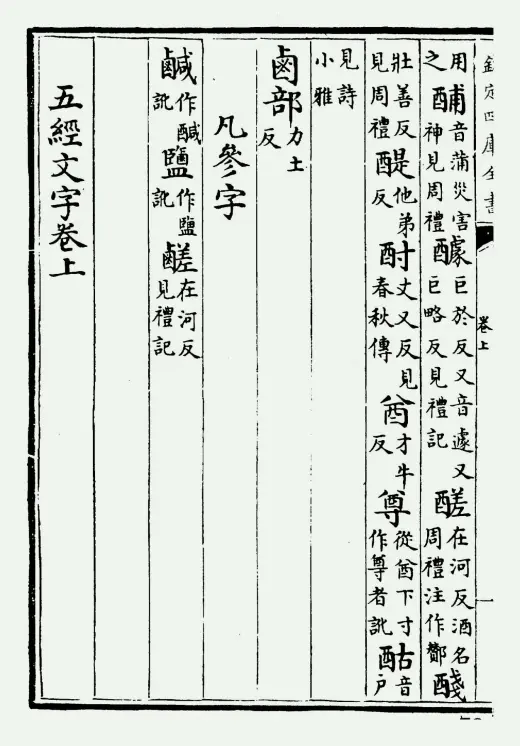 欽定四庫全書 卷上 一
用之酺音蒲災害神見周禮醵巨於反又音遽又巨略反見禮記醝在河反酒名周禮注作酇醆
壯善反見周禮醍他弟反酎丈又反見春秋傳酋才牛反尊從酋下寸作尊者訛酤音戶
見詩小雅
鹵部力土反
凡參字
鹹作醎訛鹽作鹽訛鹺在河反見禮記
五經文字卷上